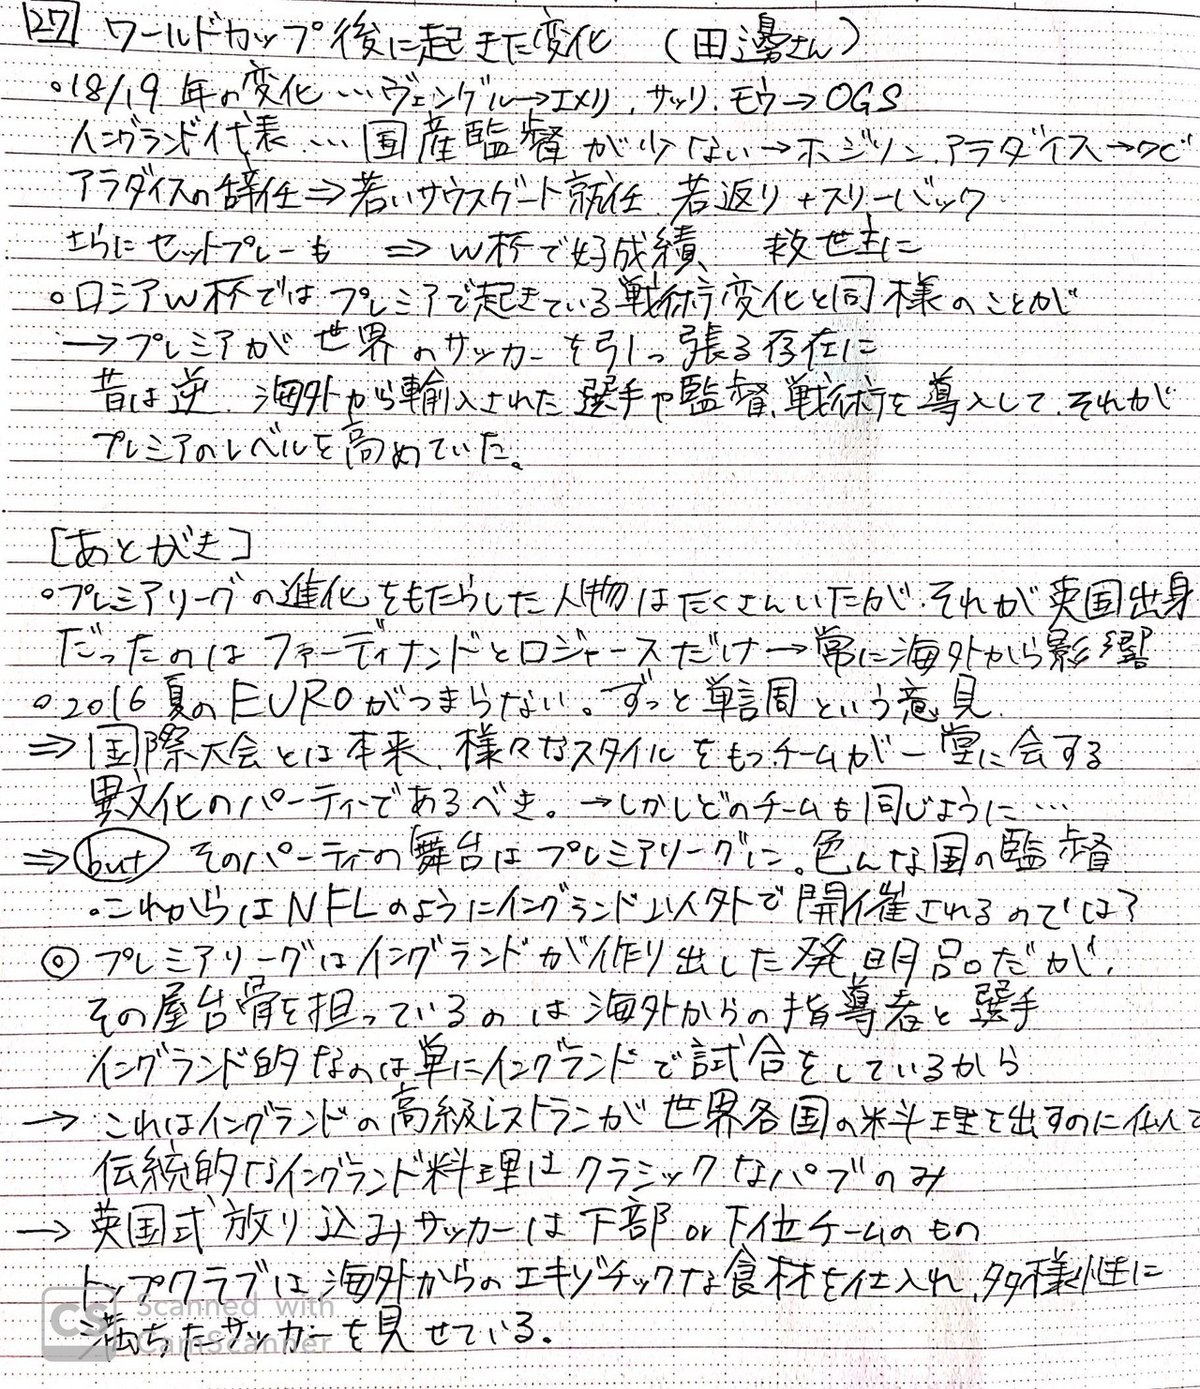 27 ワールドカップ後に起きた変化 (田邊さん)
○18/19年の変化…ヴェンゲル→エメリ、サッリ、モウ→OGS
イングランド代表…国産監督が少ない→ホジソン、アラダイス→
アラダイスの辞任⇒若いサウスゲート就任、若返り+スリーバック
さらにセットプレーも ⇒ W杯で好成績、救世主に
○ロシアW杯ではプレミアで起きている戦術変化と同様のことが
→プレミアが世界のサッカーを引っ張る存在に
昔は逆、海外から輸入された選手や監督、戦術を導入して、それが
プレミアのレベルを高めていた。
[あとがき]
○プレミアリーグの進化をもたらした人物はたくさんいたが、それが英国出身
だったのはファーディナンドとロジャースだけ→常に海外から影響
○2016夏のEUROがつまらない。ずっと単調という意見
⇒国際大会とは本来、様々なスタイルをもつチームが一堂に会する
異文化のパーティーであるべき。→しかしどのチームも同じように…
⇒but そのパーティーの舞台はプレミアリーグに。色んな国の監督
・これからはNFLのようにイングランド以外で開催されるのでは?
◎プレミアリーグはイングランドが作り出した発明品だが、
その屋台骨を担っているのは海外からの指導者と選手
イングランド的なのは単にイングランドで試合をしているから
→これはイングランドの高級レストランが世界各国の料理を出すのに似て
伝統的なイングランド料理はクラシックなパブのみ
→英国式放り込みサッカーは下部or下位チームのもの
トップクラブは海外からのエキゾチックな食材を仕入れ、多様性に
満ちたサッカーを見せている。
CS Scanned with
CamScanner